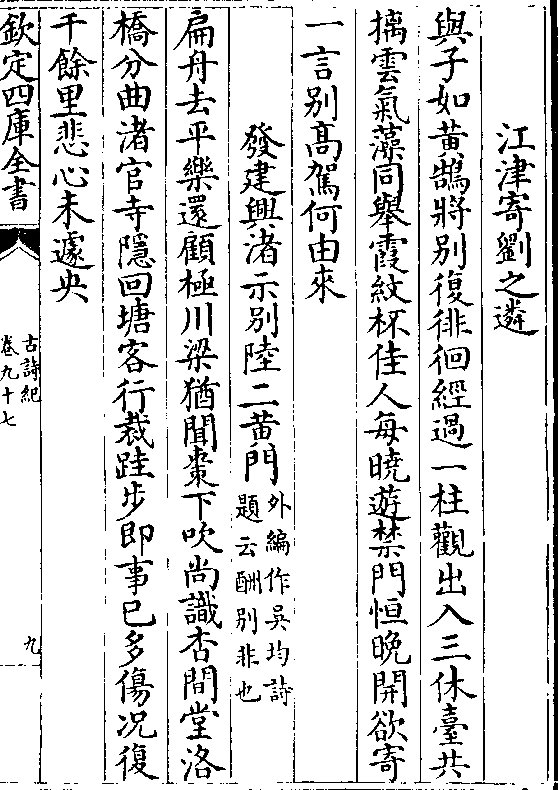 江津寄劉之遴
與子如黄鵠將别復徘徊經過一柱觀出入三休臺共
摛雲氣藻同舉霞紋杯佳人每曉遊禁門恒晚開欲寄
一言别髙駕何由來
發建興渚示别陸二黄門
外編作吳均詩
題云酬别非也
扁舟去平樂還顧極川梁猶聞棗下吹尚識杏間堂洛
橋分曲渚官寺隱回塘客行裁跬步即事已多傷况復
千餘里悲心未遽央
欽定四庫全書
古詩紀
卷九十七
九